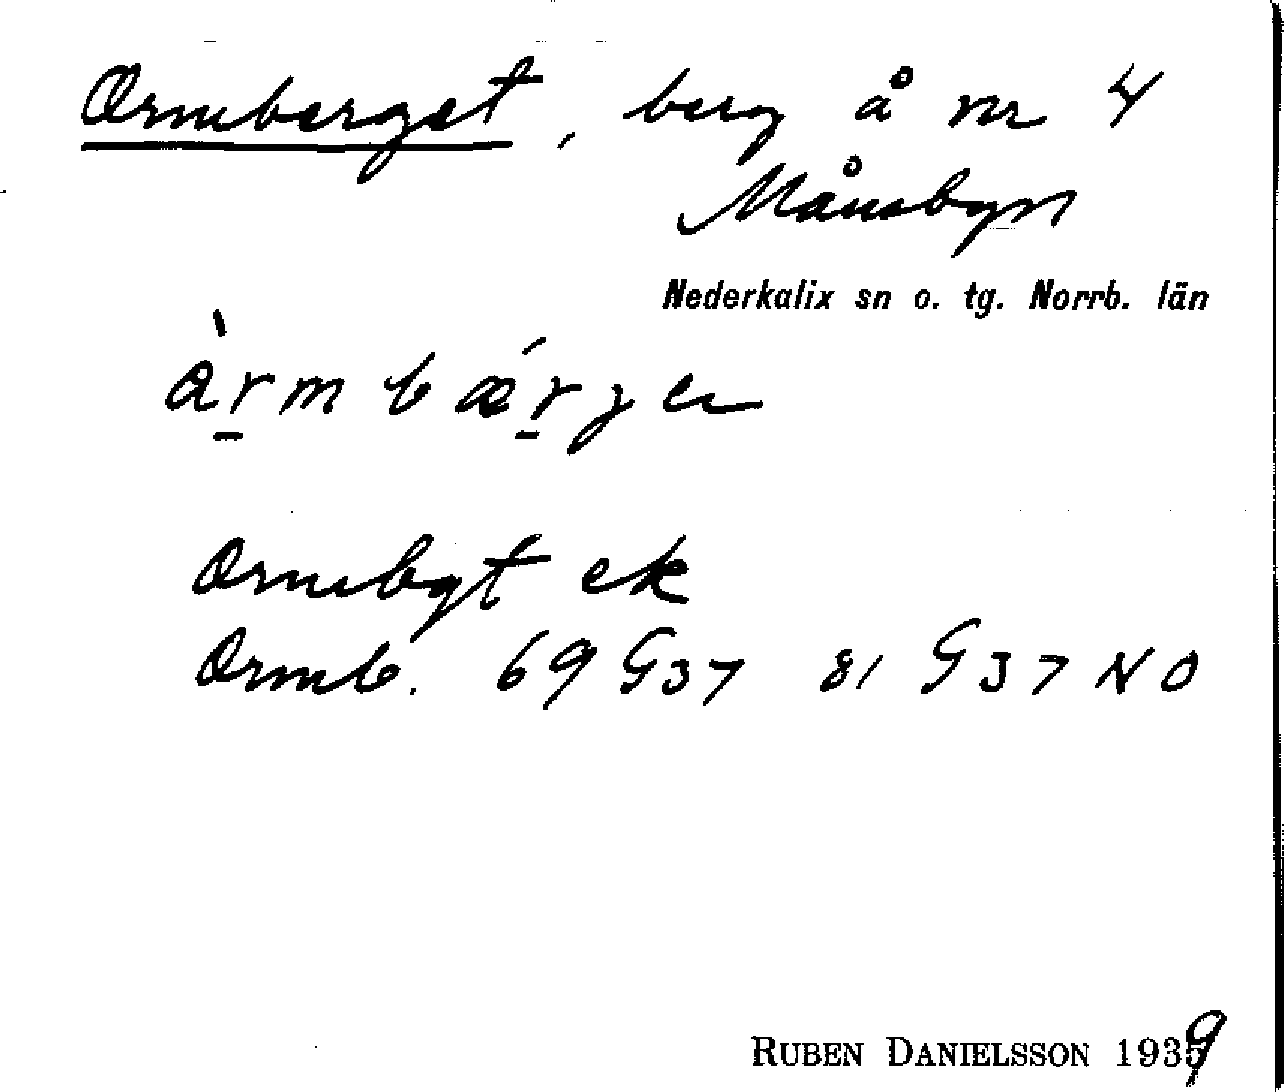 Ormberget, berg å nr 4
Månsbyn
Nederkalix sn o. tg. Norrb. län
àr̲mbǽr̲jen
Ormbgt ek
Ormb. 69 G37 81 G37 NO
RUBEN DANIELSSON 1939